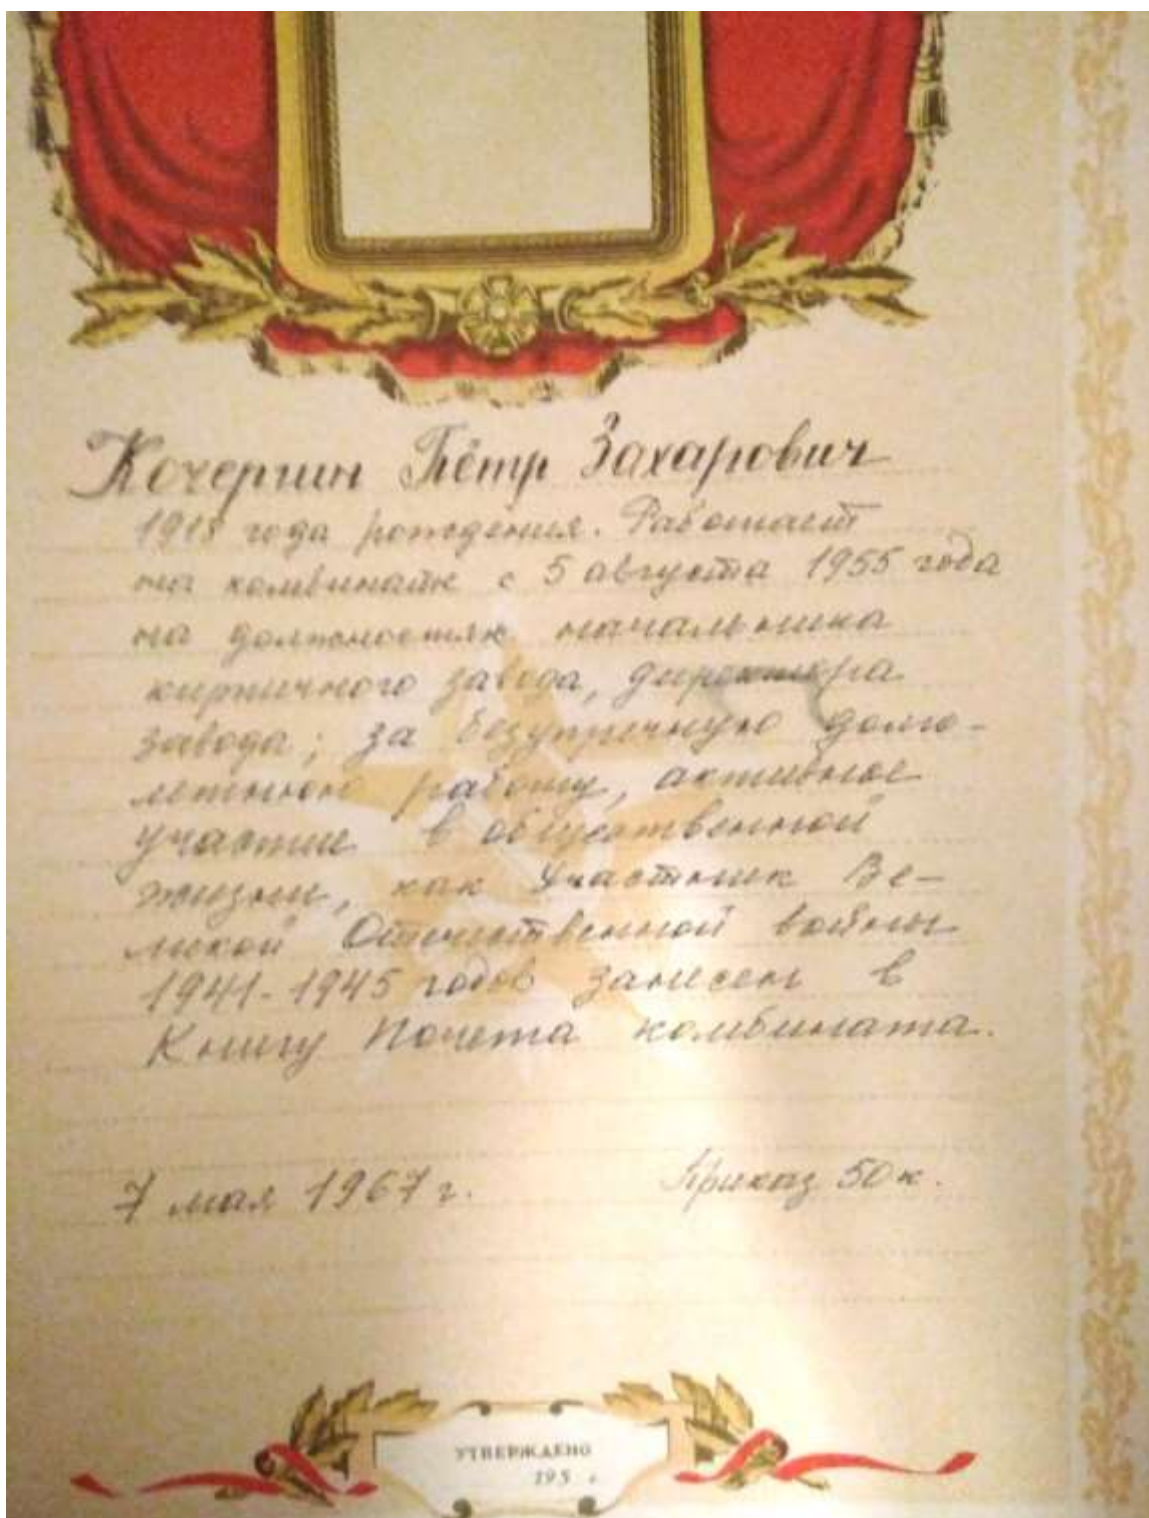 Кочергин Пётр Захарович
1918 года рождения. Работает
на комбинате с 5 августа 1955 года
на должностях начальника
кирпичного завода, директора
завода; за безупречную долго-
летнюю работу, активное
участие в общественной
жизни, как участник Ве-
ликой Отечественной войны
1941-1945 годов занесен в
Книгу Почета комбината.
7 мая 1967 г. Приказ 50 к.
УТВЕРЖДЕНО
195 г.